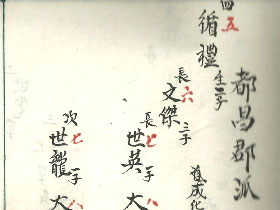 都昌郡派
四五
循禮 生一子
長六
文傑 二子
長七
世英 一子
次七
世龍 一子
大八
大八